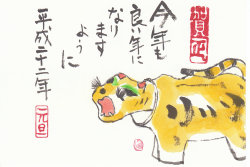 賀正
今年も
良い年に
なり
ます
ように
平成二十二年
元旦